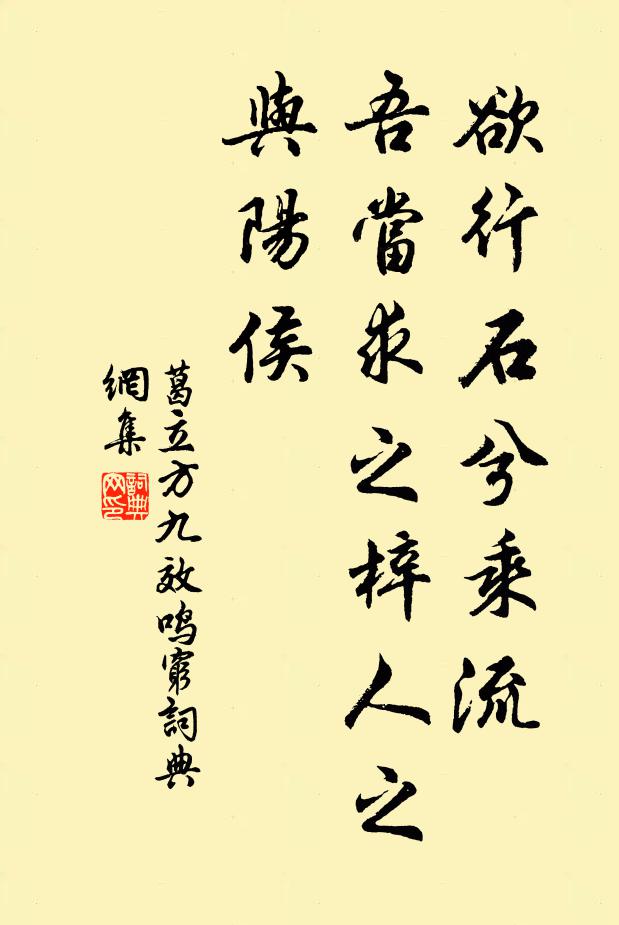 欲行石兮乘流
吾當求之梓人之
與陽侯
葛立方九效鳴窮詞典
網集
詞典
网印